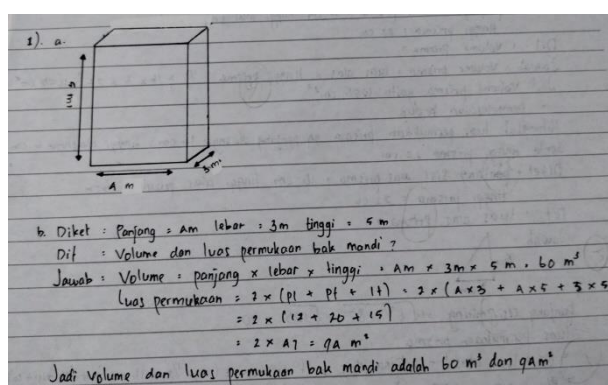 1). a.
5 m
3 m.
4 m
b. Diket : Panjang = 4m lebar = 3m tinggi = 5 m
Dit : Volume dan luas permukaan bak mandi ?
Jawab : Volume = panjang x lebar x tinggi = 4m x 3m x 5 m = 60 m³
Luas permukaan = 2 x (pl + pt + lt) = 2 x (4x3 + 4x5 + 3x5
= 2 x (12 + 20 + 15)
= 2 x 47 = 94 m²
Jadi volume dan luas permukaan bak mandi adalah 60 m³ dan 94m²